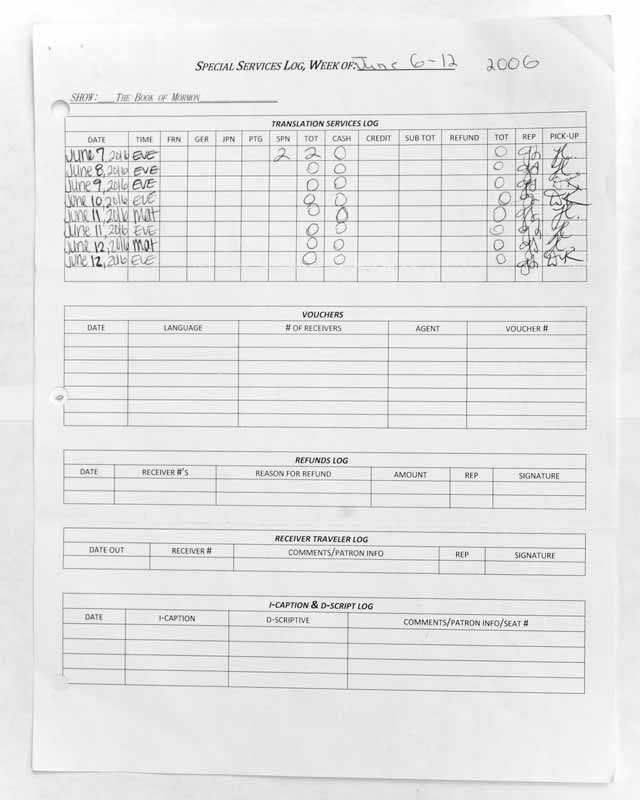 SPECIAL SERVICES LOG, WEEK OF: June 6-12 2006
SHOW: THE BOOK OF MORMON
TRANSLATION SERVICES LOG
DATE TIME FRN GER JPN PTG SPN TOT CASH CREDIT SUB TOT REFUND TOT REP PICK-UP
June 7, 2016 EVE 2 2 0 0
June 8, 2016 EVE 0 0 0
June 9, 2016 EVE 0 0 0
June 10, 2016 EVE 0 0 0
June 11, 2016 mat 0 0 0
June 11, 2016 EVE 0 0 0
June 12, 2016 mat 0 0 0
June 12, 2016 EVE 0 0 0
VOUCHERS
DATE LANGUAGE # OF RECEIVERS AGENT VOUCHER #
REFUNDS LOG
DATE RECEIVER #'S REASON FOR REFUND AMOUNT REP SIGNATURE
RECEIVER TRAVELER LOG
DATE OUT RECEIVER # COMMENTS/PATRON INFO REP SIGNATURE
I-CAPTION & D-SCRIPT LOG
DATE I-CAPTION D-SCRIPTIVE COMMENTS/PATRON INFO/SEAT #